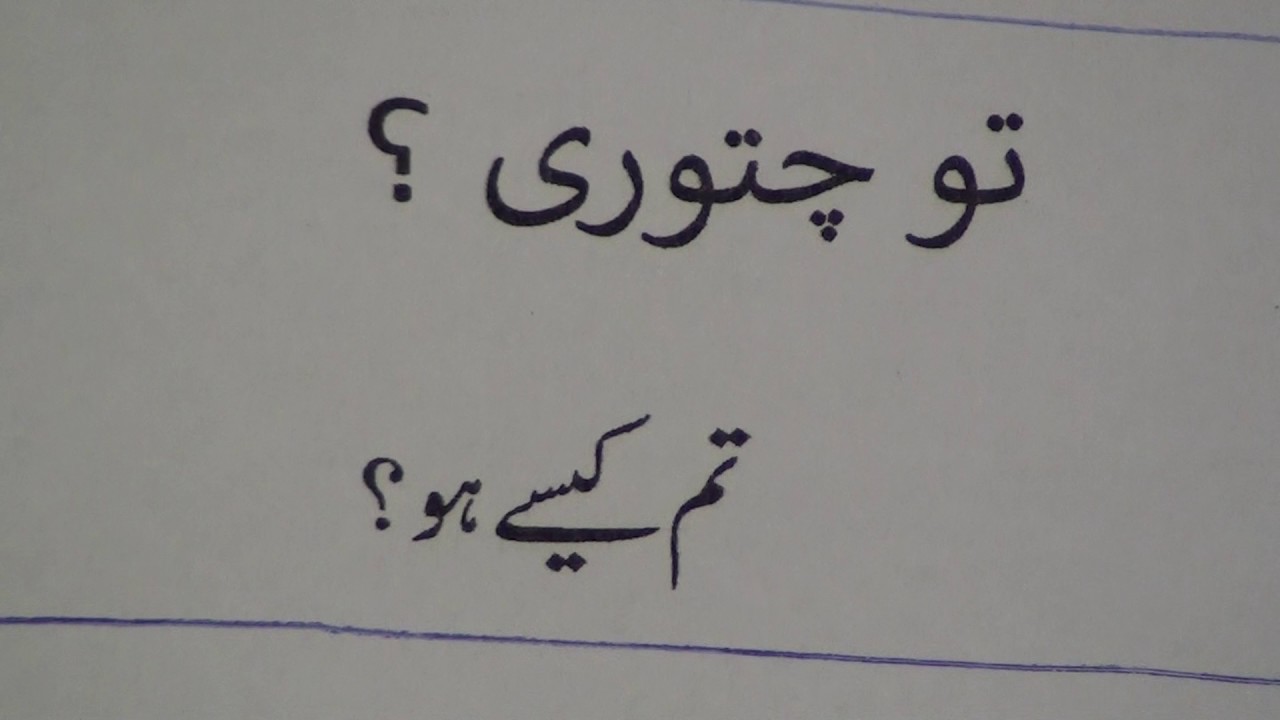 تو چتوری ؟
تم کیسے ہو؟